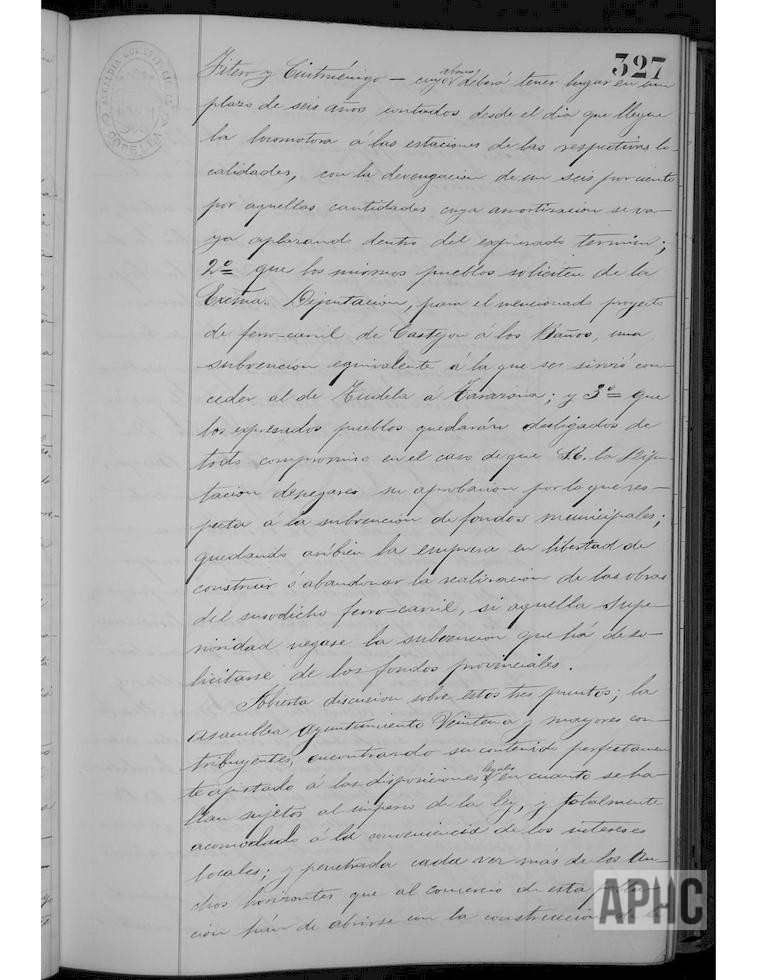 327
ALCALDIA CONSTITUCIONAL
CORELLA
Fitero y Cintruénigo — cuyo abono deberá tener lugar en un
plazo de seis años contados desde el dia que llegue
la locomotora á las estaciones de las respectivas lo-
calidades, con la devengacion de un seis por ciento
por aquellas cantidades cuya amortizacion se va-
ya aplazando dentro del expresado termino;
2º que los mismos pueblos soliciten de la
Excma. Diputacion, para el mencionado proyecto
de ferro-carril de Castejon á los Baños, una
subvencion equivalente á la que se sirvió con-
ceder al de Tudela á Tarazona; y 3º que
los expresados pueblos quedarán desligados de
todo compromiso en el caso de que S.E. la Dipu-
tacion denegare su aprobacion por lo que res-
pecta á la subvencion de fondos municipales;
quedando asi bien la empresa en libertad de
construir ó abandonar la realizacion de las obras
del susodicho ferro-carril, si aquella supe-
rioridad negase la subvencion que há de so-
licitarse de los fondos provinciales.
Abierta discusion sobre estos tres puntos; la
asamblea Ayuntamiento Veintena y mayores con-
tribuyentes, encontrando su contenido perfectamen-
te ajustado á las disposiciones legales, en cuanto se ha-
llan sujetos al imperio de la ley, y totalmente
acomodado á la conveniencia de los intereses
locales; y penetrada cada vez más de los an-
chos horizontes que al comercio de esta pobla-
cion hán de abrirse con la construccion de la
APHC